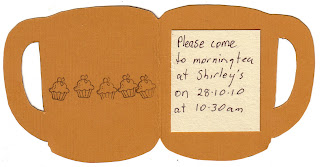 Please come
to morning tea
at Shirley's
on 28-10-10
at 10-30am